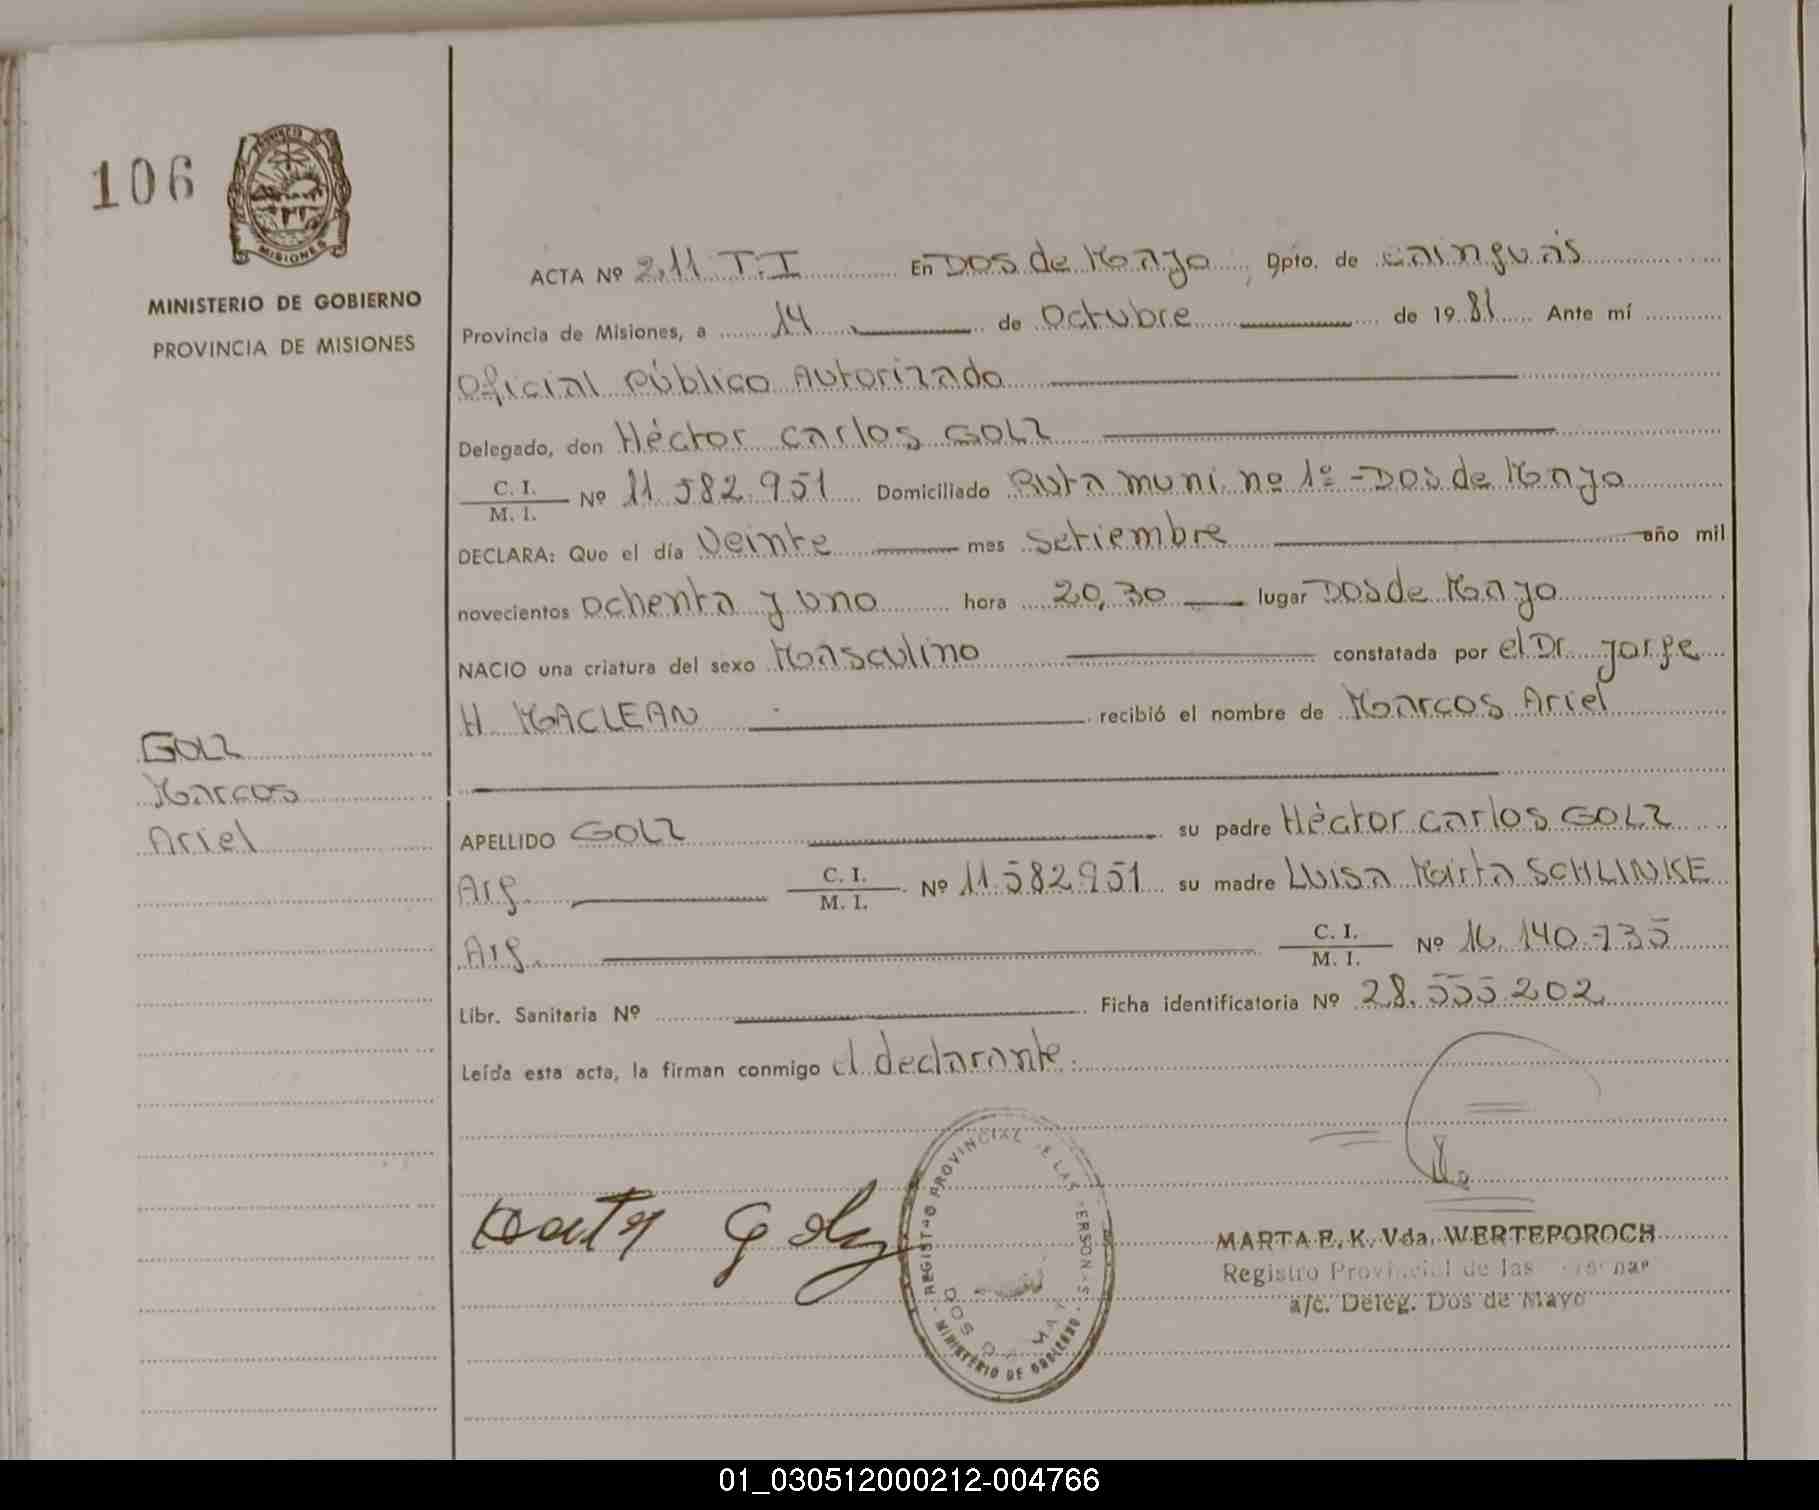 106
PROVINCIA DE
MISIONES
MINISTERIO DE GOBIERNO
PROVINCIA DE MISIONES
ACTA Nº 211 T.I En DOS de Mayo, Dpto. de Cainguás
Provincia de Misiones, a 14 de Octubre de 1981 Ante mí
Oficial Público Autorizado
Delegado, don Héctor Carlos GOLZ
C. I.
M. I. Nº 11.582.951 Domiciliado Ruta muni. nº 1º - DOS de Mayo
DECLARA: Que el día Veinte mes Setiembre año mil
novecientos ochenta y uno hora 20,30 lugar DOS de Mayo
NACIO una criatura del sexo Masculino constatada por el Dr. Jorge
H. MACLEAN recibió el nombre de Marcos Ariel
GOLZ
Marcos
Ariel
APELLIDO GOLZ su padre Héctor Carlos GOLZ
Arg. C. I.
M. I. Nº 11.582.951 su madre Luisa Mirta SCHLINKE
Arg. C. I.
M. I. Nº 16.140.735
Libr. Sanitaria Nº Ficha identificatoria Nº 28.555.202
Leída esta acta, la firman conmigo el declarante.
Golz
REGISTRO PROVINCIAL DE LAS PERSONAS
DOS DE MAYO
MINISTERIO DE GOBIERNO
MARTA E. K. Vda. WERTEPOROCH
Registro Provincial de las Personas
a/c. Deleg. Dos de Mayo
01_030512000212-004766